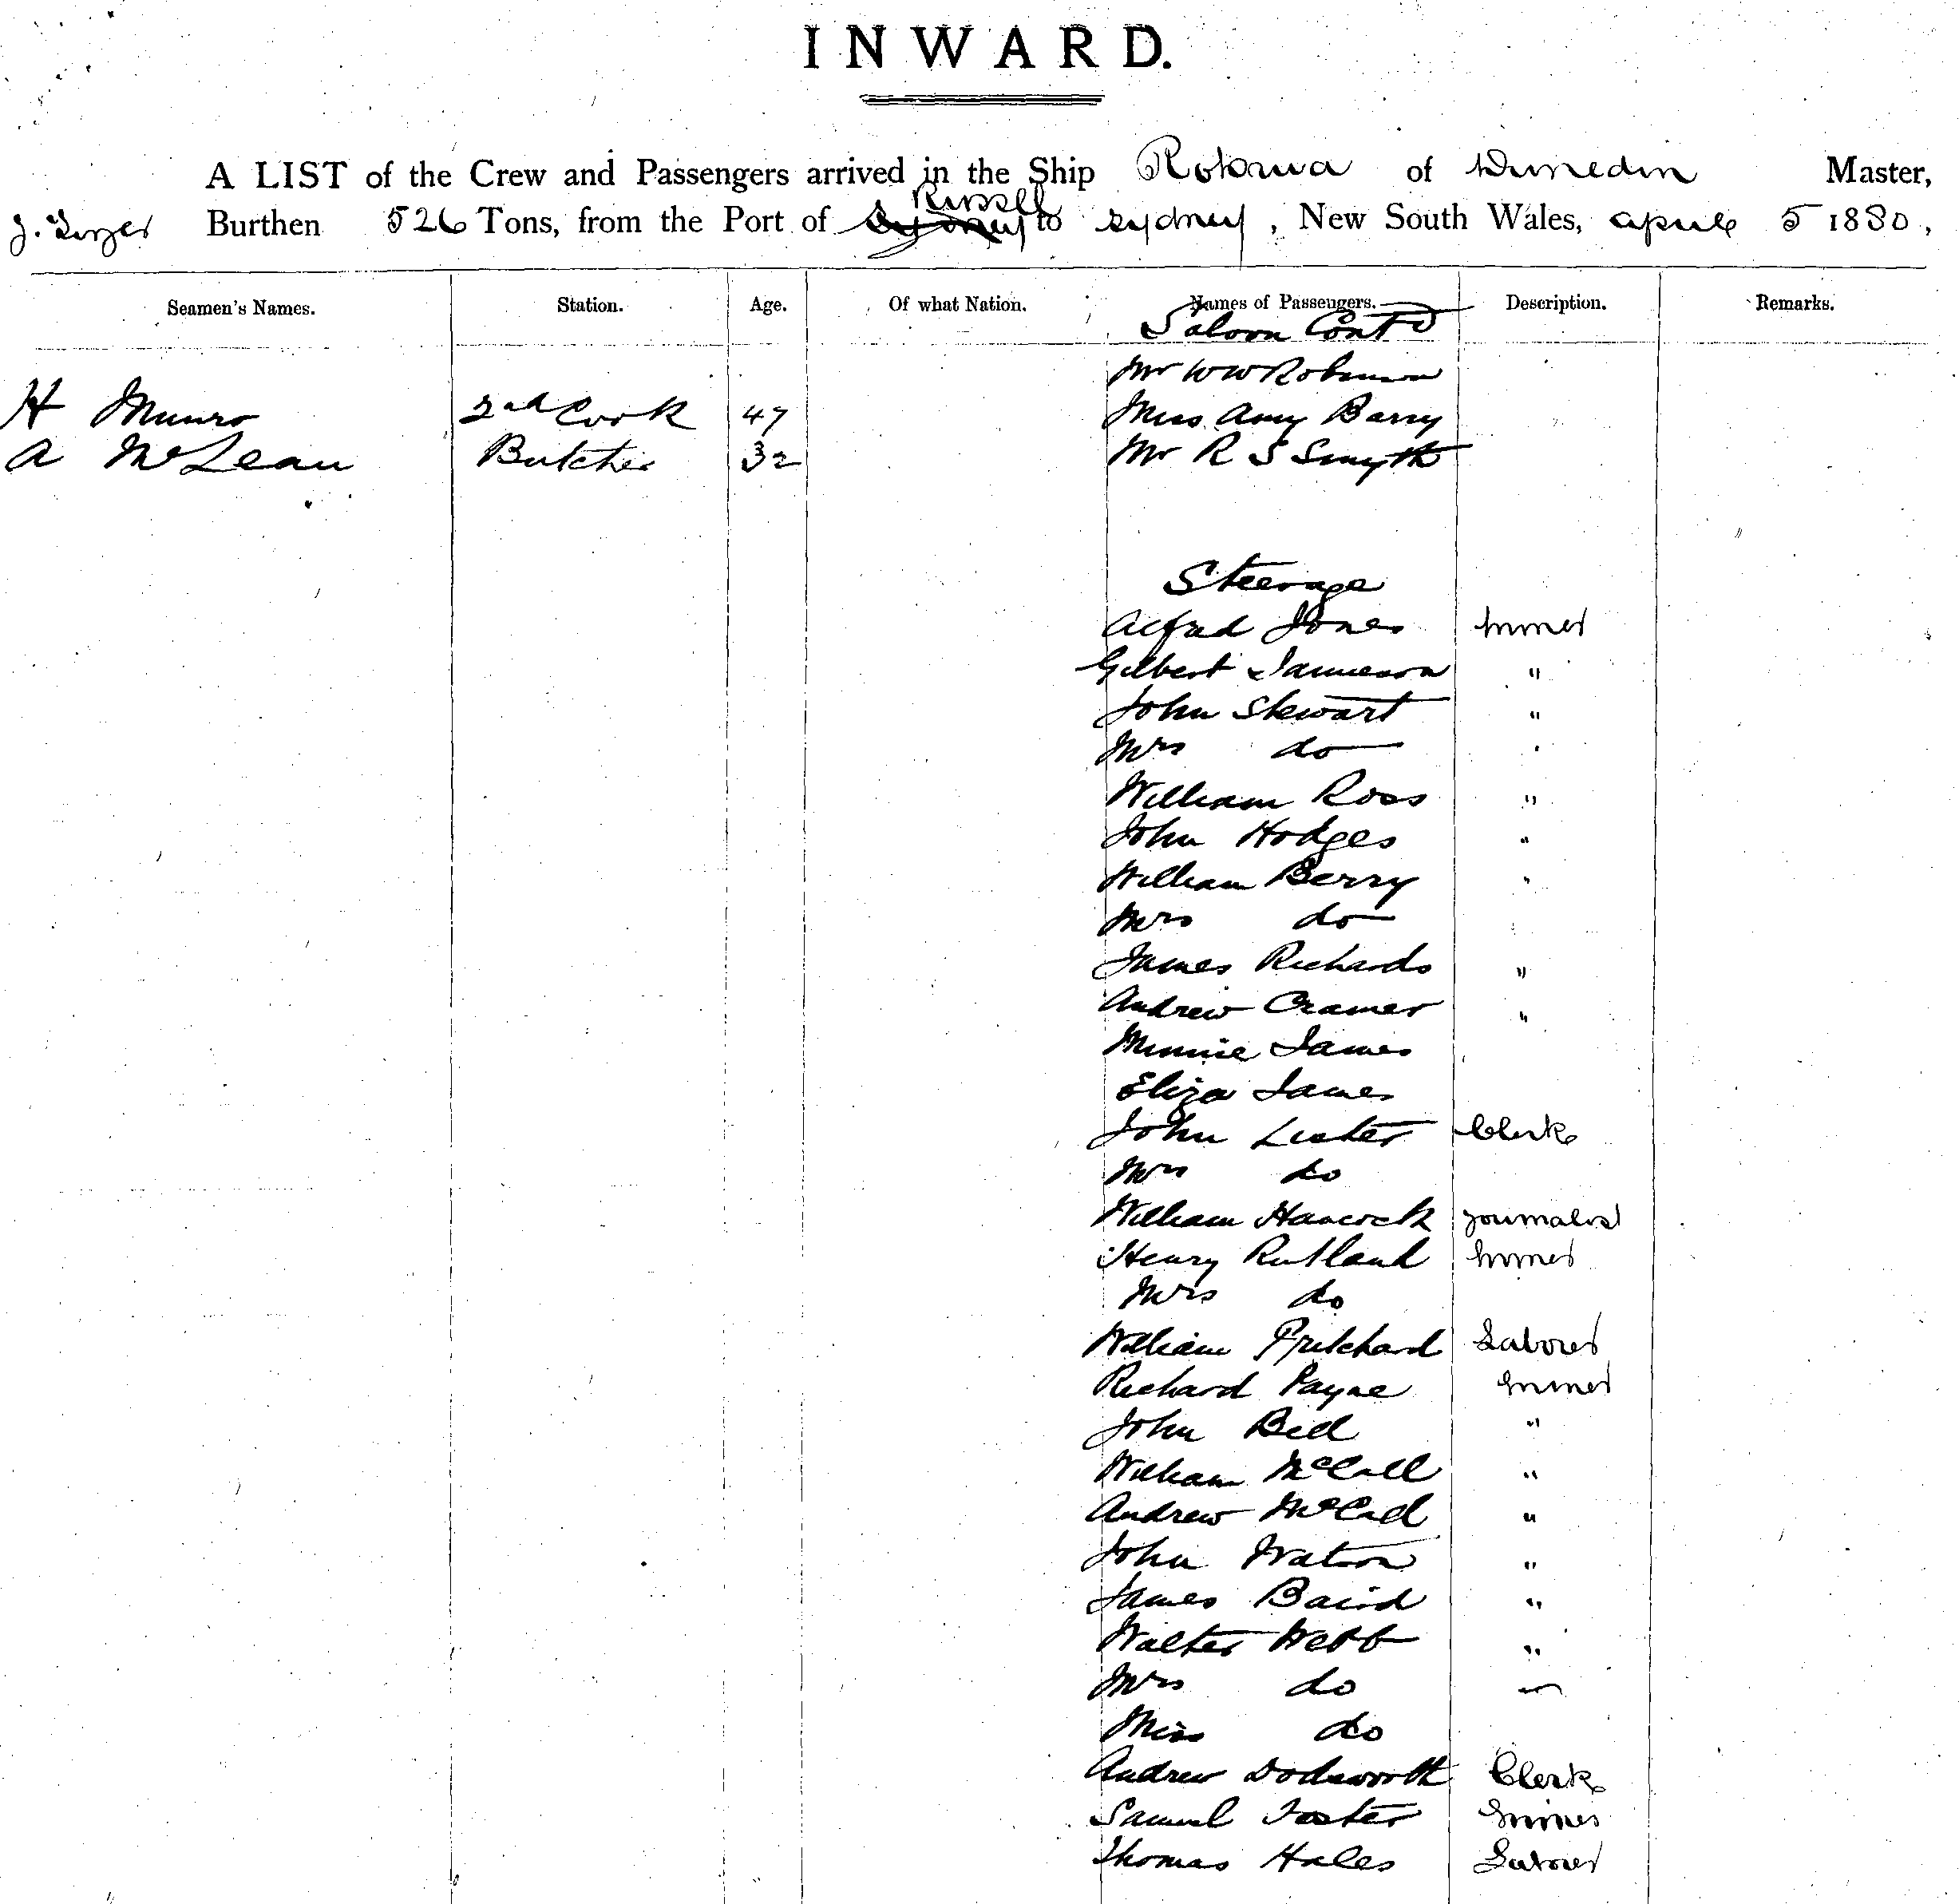 INWARD.
A LIST of the Crew and Passengers arrived in the Ship Rotorua of Dunedin Master,
Russell
Burthen 526 Tons, from the Port of Sydney to Sydney, New South Wales, April 5 1880,
Seamen's Names. Station. Age. Of what Nation. Names of Passengers. Description. Remarks.
Saloon Contd
Mr WW Robinson
H Munro 2nd Cook 47 Miss Amy Barry
A McLean Butcher 32 Mr R S Smyth
Steerage
Alfred Jones Miner
Gilbert Jamieson "
John Stewart "
Mrs do "
William Ross "
John Hodges "
William Berry "
Mrs do "
James Richards "
Andrew Cramer "
Minnie James
Eliza James
John Lister Clerk
Mrs do
William Hancock Journalist
Henry Rutland Miner
Mrs do
William Pritchard Laborer
Richard Payne Miner
John Bell "
William McCall "
Andrew McCall "
John Watson "
James Baird "
Walter Webb "
Mrs do
Miss do
Andrew Dodsworth Clerk
Samuel Foster Miner
Thomas Hales Laborer